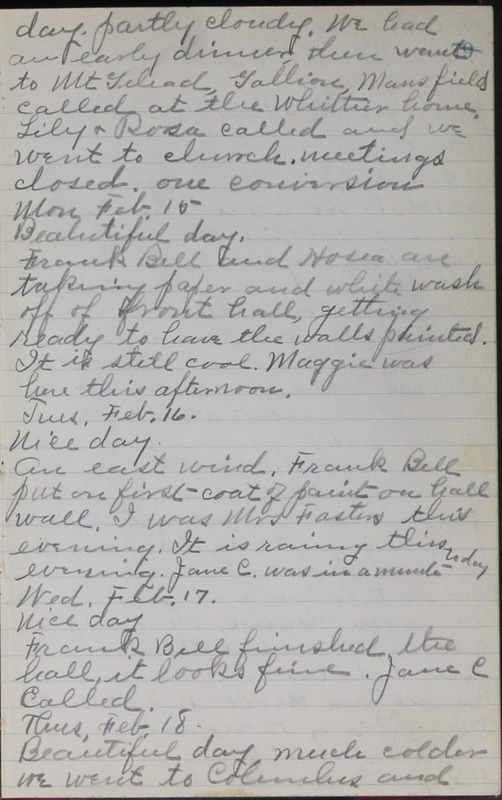 day partly cloudy. We had
an early dinner, then went
to Mt Gilead, Gallion, Mansfield
called at the Whittier home.
Lily & Rosa called and we
went to church. meetings
closed. one conversion
Mon, Feb, 15
Beahutiful day.
Frank Bell and Hosea are
taking paper and white wash
off of front hall, getting
ready to have the walls painted.
It is still cool. Maggie was
here this afternoon.
Tues, Feb, 16.
Nice day.
An east wind. Frank Bell
put on first coat of paint on hall
wall. I was Mrs Fosters this
evening. It is rainy this
evening. Jane C. was in a minute today
Wed. Feb, 17.
Nice day
Frank Bell finished the
hall, it looks fine. Jane C
Called.
Thus, Feb 18.
Beautiful day much colder
we went to Columbus and